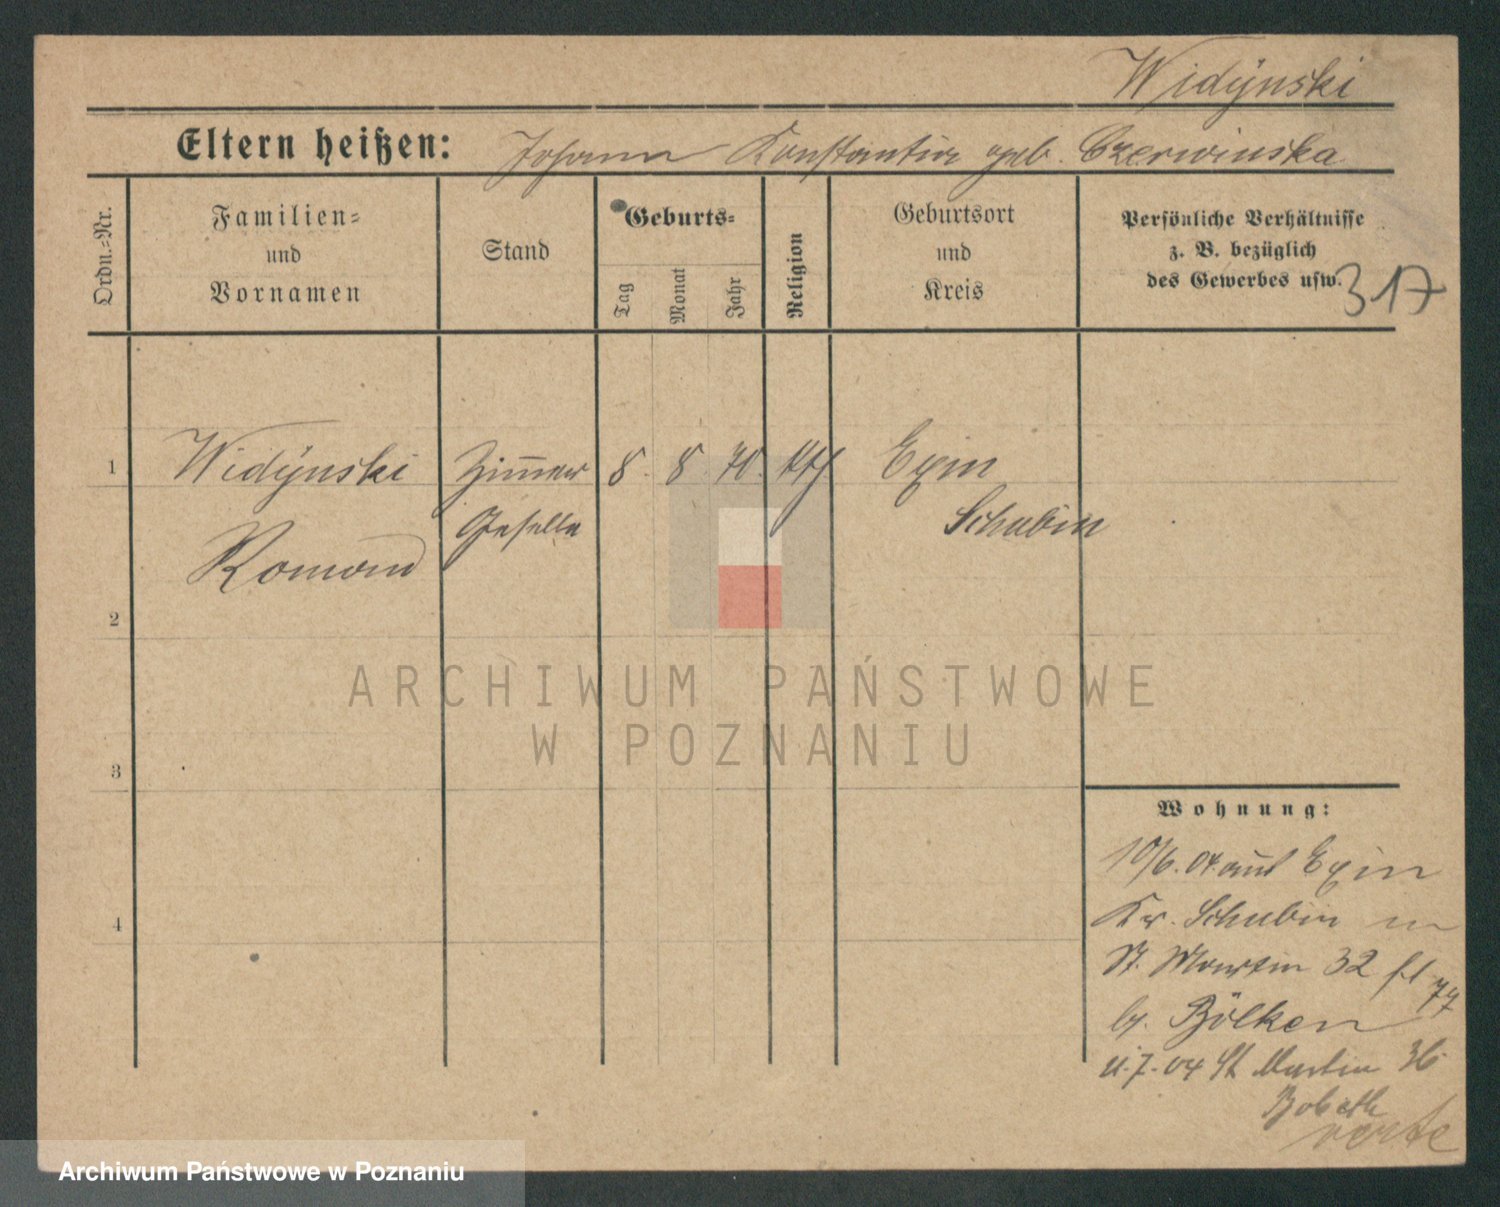 Widÿnski
Eltern heißen: Johann Konstantia geb. Czerwinska
Ordn.-Nr.
Familien-
und
Vornamen
Stand
Geburts-
Tag
Monat
Jahr
Religion
Geburtsort
und
Kreis
Persönliche Verhältnisse
z. B. bezüglich
des Gewerbes usw.
317
1
Widÿnski
Zimmer
8. 8. 70. kth.
Exin
Geselle
Schubin
Roman
2
ARCHIWUM PAŃSTWOWE
W POZNANIU
3
Wohnung:
10/6. 04 aus Exin
4
Kr. Schubin
St. Martin 32
b. Bölken
7. 04 St Martin 36
verte
Archiwum Państwowe w Poznaniu